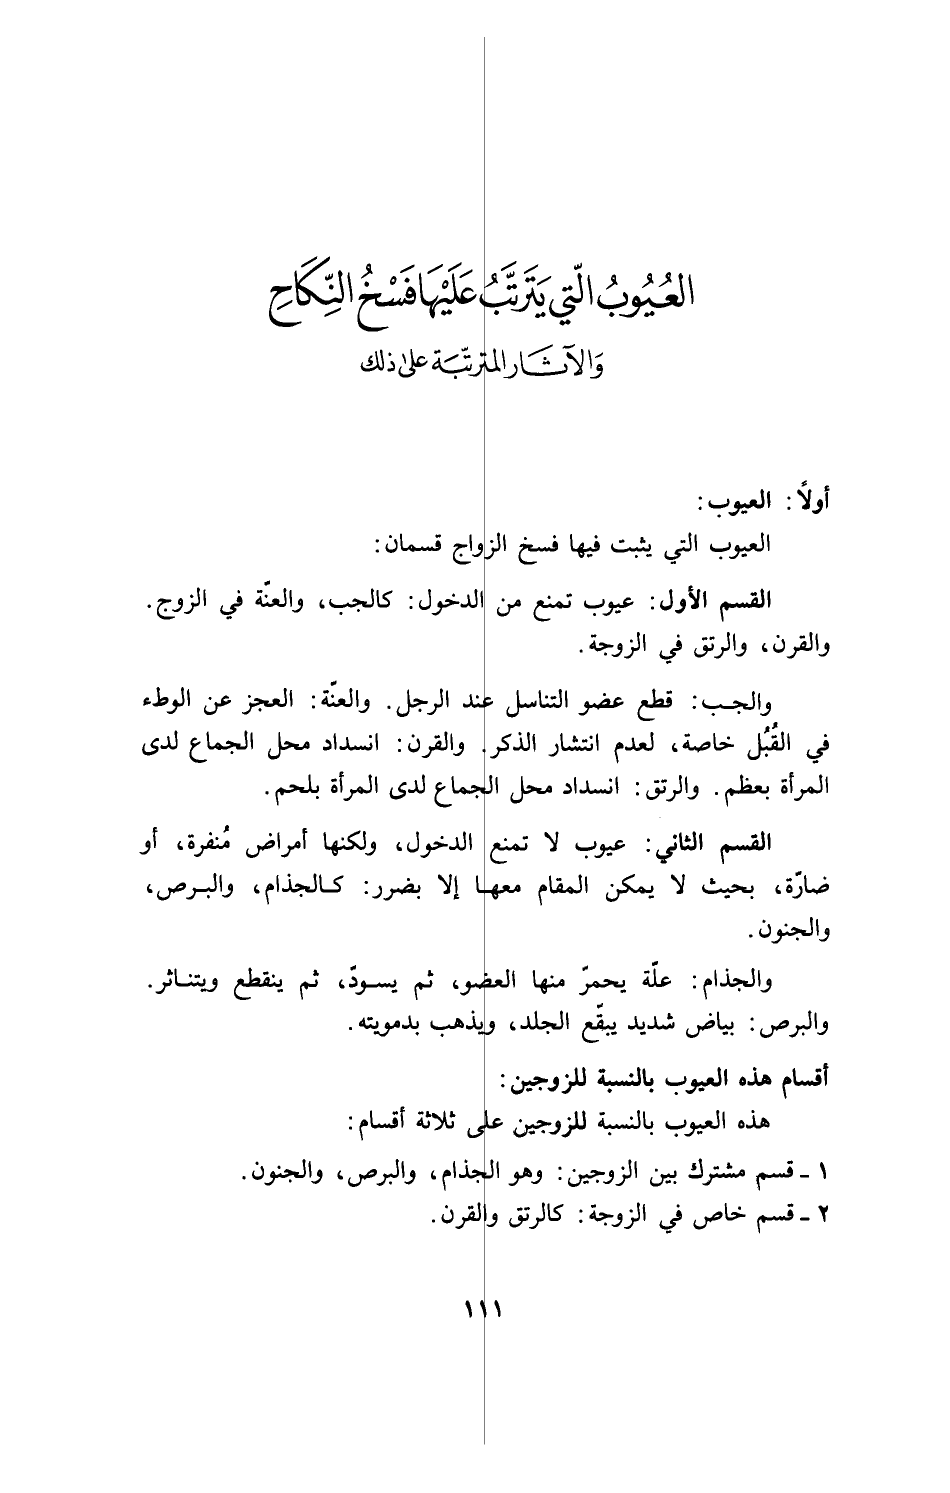 العُيُوبُ الَّتي يَتَرتَّبُ عَلَيْهَا فَسْخُ النِّكَاحِ
وَالآثَار المترتّبة على ذلك
أولاً: العيوب:
العيوب التي يثبت فيها فسخ الزواج قسمان:
القسم الأول: عيوب تمنع من الدخول: كالجب، والعنّة في الزوج.
والقرن، والرتق في الزوجة.
والجب: قطع عضو التناسل عند الرجل. والعنّة: العجز عن الوطء
في القُبُل خاصة، لعدم انتشار الذكر. والقرن: انسداد محل الجماع لدى
المرأة بعظم. والرتق: انسداد محل الجماع لدى المرأة بلحم.
القسم الثاني: عيوب لا تمنع الدخول، ولكنها أمراض مُنفرة، أو
ضارّة، بحيث لا يمكن المقام معها إلا بضرر: كالجذام، والبرص،
والجنون.
والجذام: علّة يحمرّ منها العضو، ثم يسودّ، ثم ينقطع ويتناثر.
والبرص: بياض شديد يبقّع الجلد، ويذهب بدمويته.
أقسام هذه العيوب بالنسبة للزوجين:
هذه العيوب بالنسبة للزوجين على ثلاثة أقسام:
١ ـ قسم مشترك بين الزوجين: وهو الجذام، والبرص، والجنون.
٢ ـ قسم خاص في الزوجة: كالرتق والقرن.
١١١